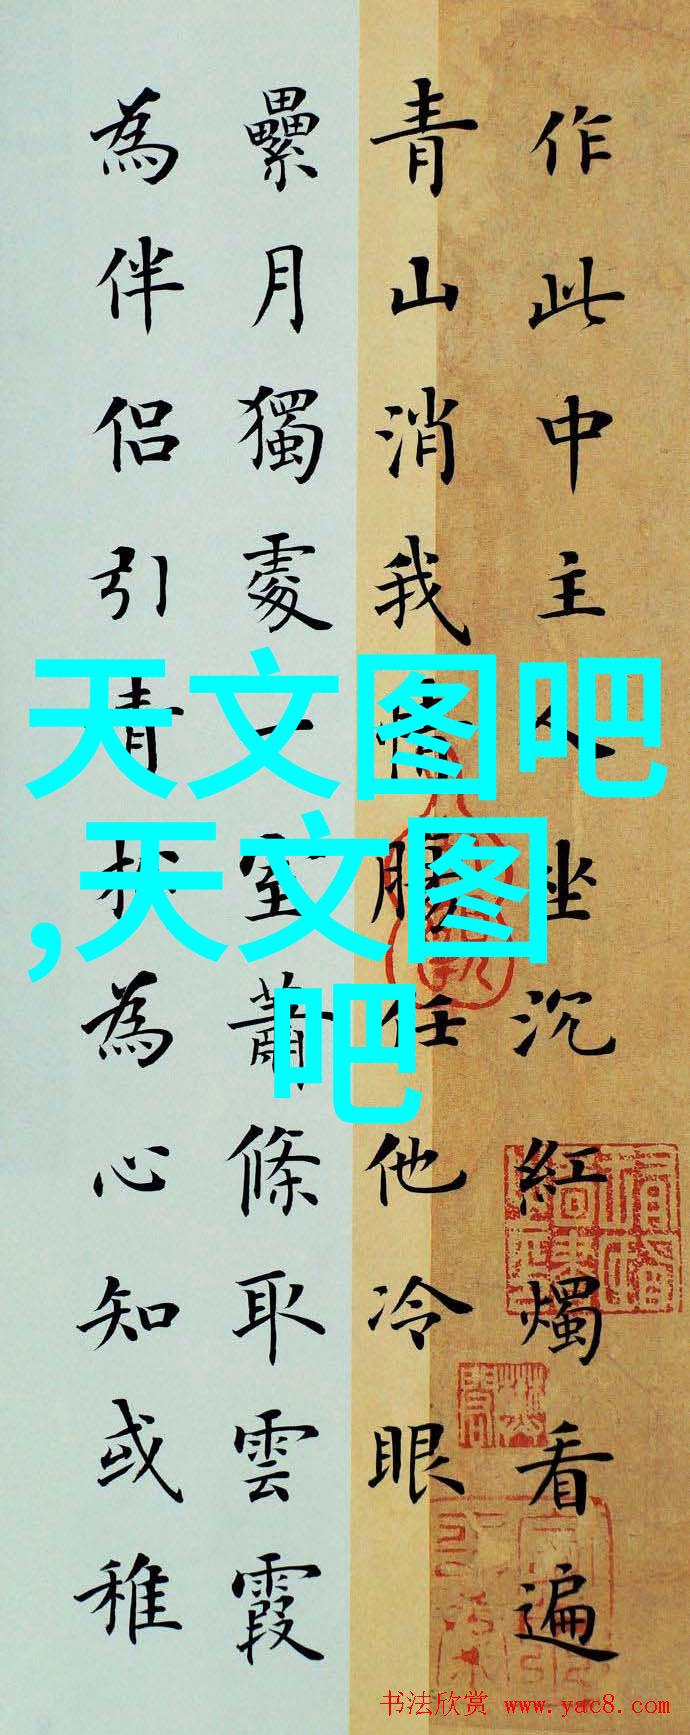 作此中主人坐沉紅燭看遍
青山消我情腸任他冷眼
纍月獨處一室蕭條取雲霞
為伴侶引青松為心知或稚
天文图吧
,天文图
吧
书法欣赏 www.yac8.com